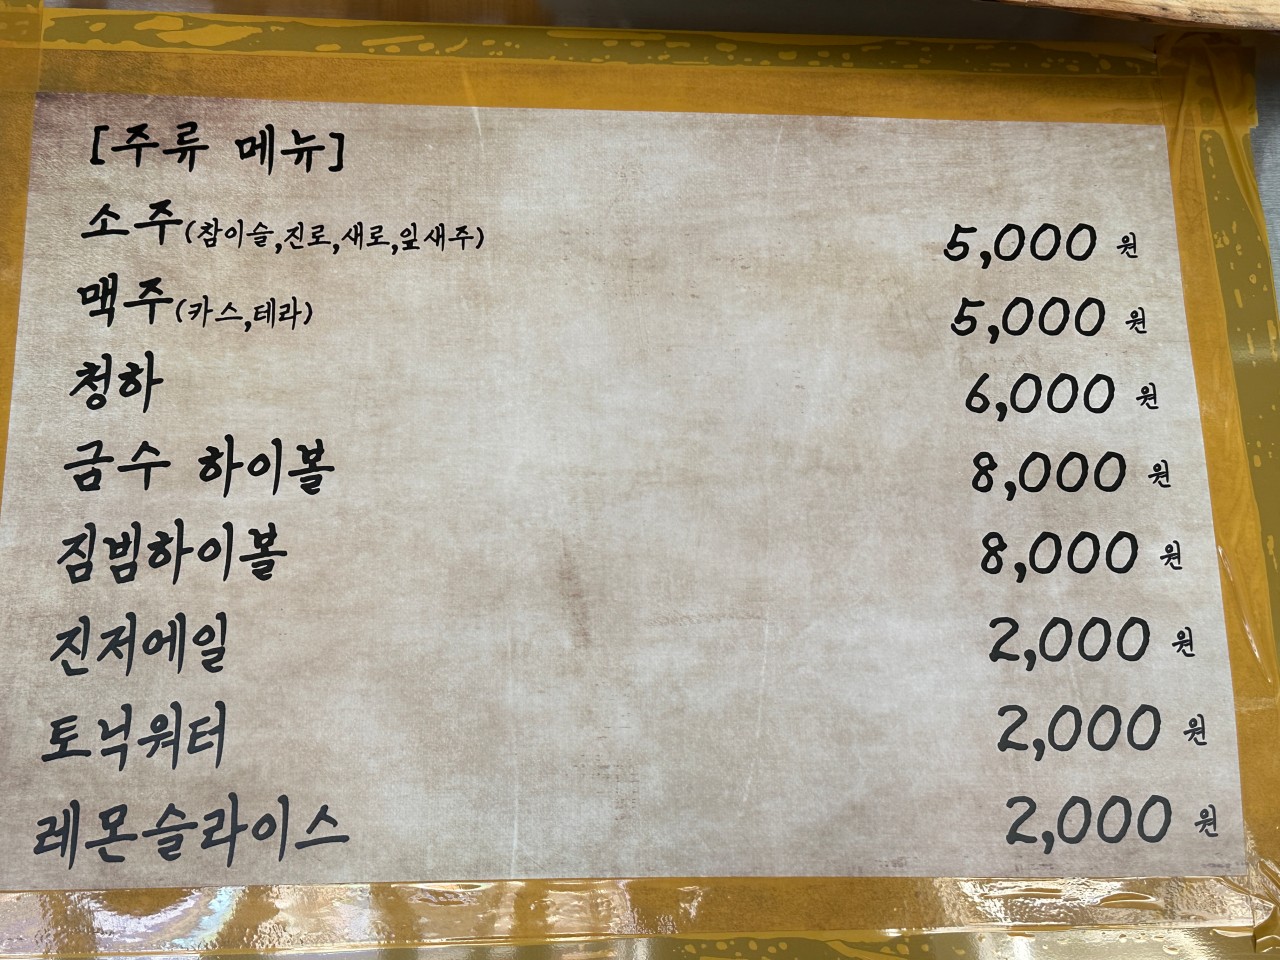 [주류 메뉴]
소주(참이슬,진로,새로,잎새주) 5,000 원
맥주(카스,테라) 5,000 원
청하 6,000 원
금수 하이볼 8,000 원
짐빔하이볼 8,000 원
진저에일 2,000 원
토닉워터 2,000 원
레몬슬라이스 2,000 원